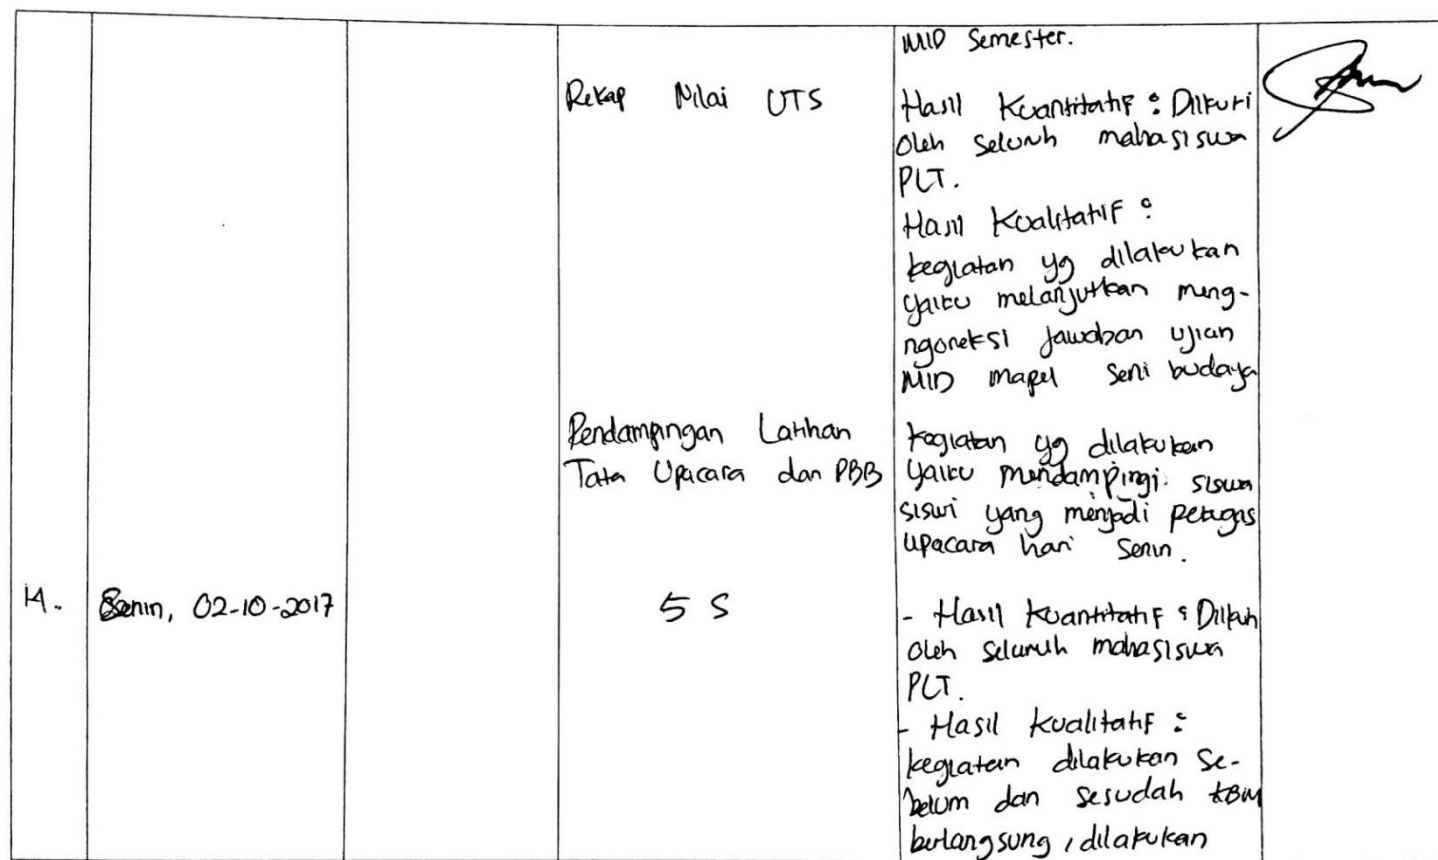 MID Semester.
Rekap Nilai UTS
Hasil Kuantitatif : Diikuti
oleh seluruh mahasiswa
PLT.
Hasil Kualitatif :
kegiatan yg dilakukan
yaitu melanjutkan meng-
ngoreksi jawaban ujian
MID mapel seni budaya
Pendampingan Latihan
Tata Upacara dan PBB
kegiatan yg dilakukan
yaitu mendampingi siswa
siswi yang menjadi petugas
upacara hari Senin.
14. Senin, 02-10-2017
5 S
- Hasil Kuantitatif : Diikuti
oleh seluruh mahasiswa
PLT.
- Hasil Kualitatif :
kegiatan dilakukan se-
belum dan sesudah KBM
berlangsung, dilakukan